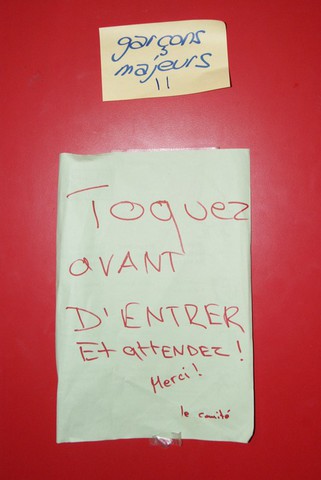 garçons
majeurs
11
Toquez
AVANT
D'ENTRER
Et attendez!
Merci!
le comité